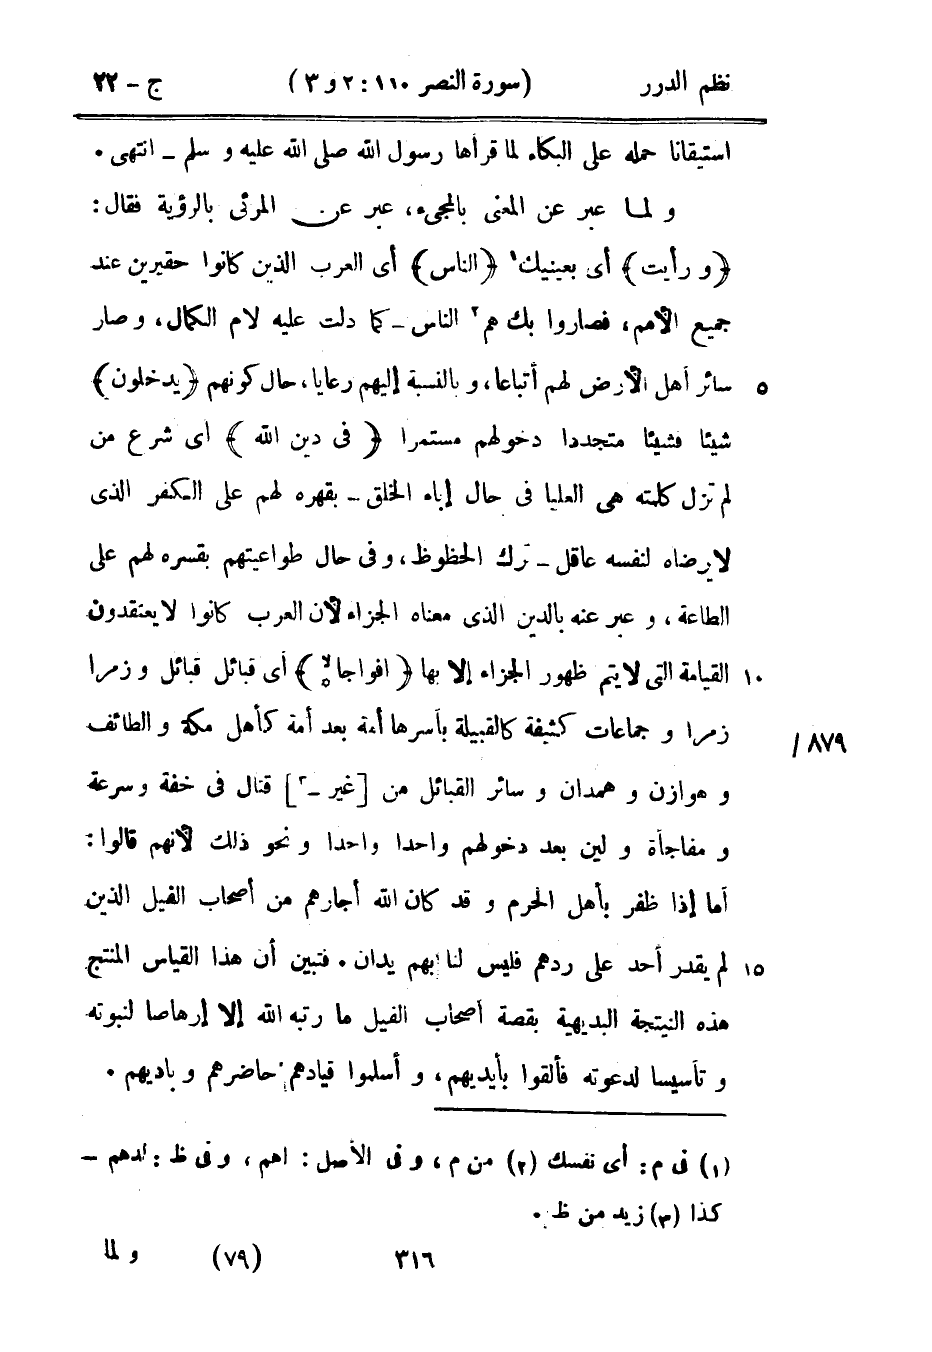 نظم الدرر (سورة النصر ١١٠ : ٢ و ٣) ج - ٢٢
استيقانا حمله على البكاء لما قرأها رسول الله صلى الله عليه و سلم - انتهى .
و لما عبر عن المعنى بالمجيء، عبر عن المرئى بالرؤية فقال :
﴿و رأيت﴾ أى بعينيك١ ﴿الناس﴾ أى العرب الذين كانوا حقيرين عند
جميع الأمم، فصاروا بك هم٢ الناس - كما دلت عليه لام الكمال، و صار
٥ سائر أهل الأرض لهم أتباعا، و بالنسبة إليهم رعايا، حال كونهم ﴿يدخلون﴾
شيئا فشيئا متجددا دخولهم مستمرا ﴿فى دين الله﴾ أى شرع من
لم تزل كلمته هى العليا فى حال إباء الخلق - بقهره لهم على الكفر الذى
لا يرضاه لنفسه عاقل - ترك الحظوظ، و فى حال طواعيتهم بقسره لهم على
الطاعة، و عبر عنه بالدين الذى معناه الجزاء لأن العرب كانوا لا يعتقدون
١٠ القيامة التى لا يتم ظهور الجزاء إلا بها ﴿افواجا لا ه﴾ أى قبائل قبائل و زمرا
زمرا و جماعات كثيفة كالقبيلة بأسرها أمة بعد أمة كأهل مكة و الطائف ٨٧٩ /
و هوازن و همدان و سائر القبائل من [غير -٣] قتال فى خفة و سرعة
و مفاجأة و لين بعد دخولهم واحدا واحدا و نحو ذلك لأنهم قالوا :
أما إذا ظفر بأهل الحرم و قد كان الله أجارهم من أصحاب الفيل الذين
١٥ لم يقدر أحد على ردهم فليس لنا بهم يدان . فتبين أن هذا القياس المنتج
هذه النيتجة البديهية بقصة أصحاب الفيل ما رتبه الله إلا إرهاصا لنبوته
و تأسيسا لدعوته فألقوا بأيديهم، و أسلموا قيادهم حاضرهم و باديهم .
(١) فى م : أى نفسك (٢) من م، و فى الأصل : اهم، و فى ظ : لدهم -
كذا (٣) زيد من ظ .
٣١٦ (٧٩) و لما